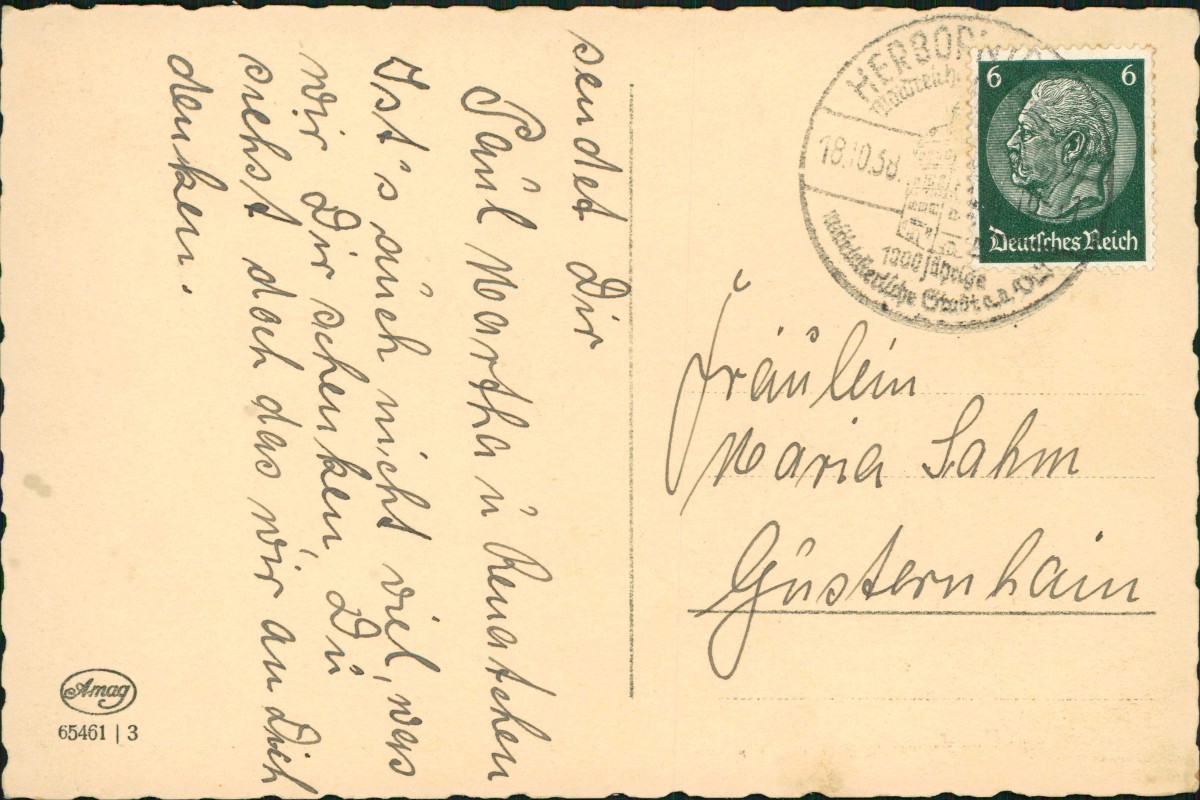 sendet Dir
Paul Martha u Renatchen
Ist's auch nicht viel, was
wir Dir schenken, Du
siehst doch das wir an Dich
denken.
HERBORN
18.10.38.
1000 jährige
mittelalterliche Stadt a.d. Dill
6 6
Deutsches Reich
Fräulein
Maria Sahm
Gusternhain
Amag
65461 | 3